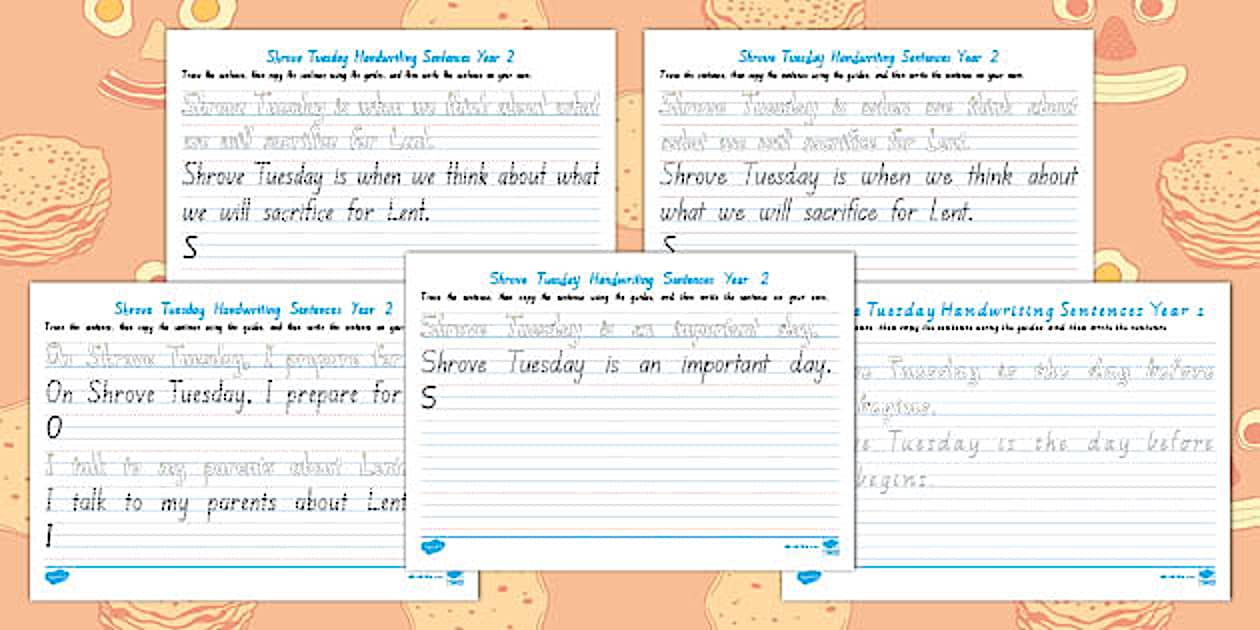 Shrove Tuesday Handwriting Sentences Year 2
Trace the sentence, then copy the sentence using the guides, and then write the sentence on your own.
Shrove Tuesday is when we think about what
we will sacrifice for Lent.
Shrove Tuesday is when we think about what
we will sacrifice for Lent.
S
Shrove Tuesday Handwriting Sentences Year 2
Trace the sentence, then copy the sentence using the guides, and then write the sentence on your own.
Shrove Tuesday is when we think about
what we will sacrifice for Lent.
Shrove Tuesday is when we think about
what we will sacrifice for Lent.
S
Shrove Tuesday Handwriting Sentences Year 2
Trace the sentence, then copy the sentence using the guides, and then write the sentence on your
On Shrove Tuesday, I prepare for
On Shrove Tuesday, I prepare for
O
I talk to my parents about Lent
I talk to my parents about Lent
I
Shrove Tuesday Handwriting Sentences Year 2
Trace the sentence, then copy the sentence using the guides, and then write the sentence on your own.
Shrove Tuesday is an important day.
Shrove Tuesday is an important day.
S
e Tuesday Handwriting Sentences Year 2
then copy the sentence using the guides and then write the sentence
e Tuesday is the day before
begins.
e Tuesday is the day before
begins.